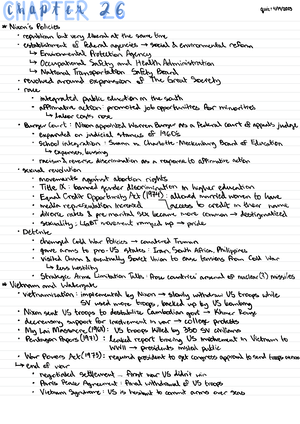 Chapter 26
quiz: 4/19/2023
* Nixon's Policies
• republican but very liberal at the same time
• establishment of federal agencies → social & environmental reform
↳ Environmental Protection Agency
↳ Occupational Safety and Health Administration
↳ National Transportation Safety Board
• revolved around expansion of The Great Society
• race
• integrated public education in the south
• affirmative action: promoted job opportunities for minorities
↳ labor costs rose
• Burger Court: Nixon appointed Warren Burger was a federal court of appeals judge
• expanded on judicial stance of 1960s
• school integration: Swann v. Charlotte-Mecklenburg Board of Education
↳ expanded busing
• racism & reverse discrimination as a response to affirmative action
• sexual revolution
• movements against abortion rights
• Title IX: banned gender discrimination in higher education
• Equal Credit Opportunity Act (1974): allowed married women to have
• media representation increased access to credit in their name
• divorce rates & pre-marital sex became more common → destigmatized
• sexuality: LGBT movement ramped up → pride
• Detente
• changed Cold War Policies → countered Truman
• gave arms to pro-US states: Iran, South Africa, Philippines
• visited China & eventually Soviet Union to ease tensions from Cold War
↳ less hostility
• Strategic Arms Limitation Talks: froze countries' arsenal of nuclear(?) missiles
* Vietnam and Watergate
• Vietnamization: implemented by Nixon → slowly withdraw US troops while
SV used more troops, backed up by US bombing
• Nixon sent US troops to destabilize Cambodian govt → Khmer Rouge
• decreasing support for involvement in war → college protests
• My Lai Massacre (1968): US troops killed by 350 SV civilians
• Pentagon Papers (1971): leaked report tracing US involvement in Vietnam to
WWII → presidents misled public
• War Powers Act (1973): required president to get congress approval to send troops overseas
↳ end of war
• negotiated settlement... first war US didn't win
• Paris Peace Agreement: final withdrawal of US troops
• Vietnam Syndrome: US is hesitant to commit arms over seas